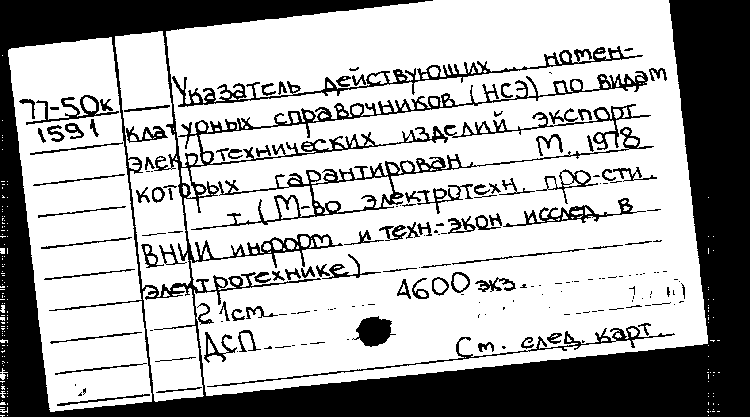 77-50к
1591
Указатель действующих ... номен-
клатурных справочников (НСЭ) по видам
электротехнических изделий, экспорт
которых гарантирован. М., 1978
т. (М-во электротехн. про-сти.
ВНИИ информ. и техн.-экон. исслед. в
электротехнике)
21см. 4600 экз.
ДСП.
См. след. карт.